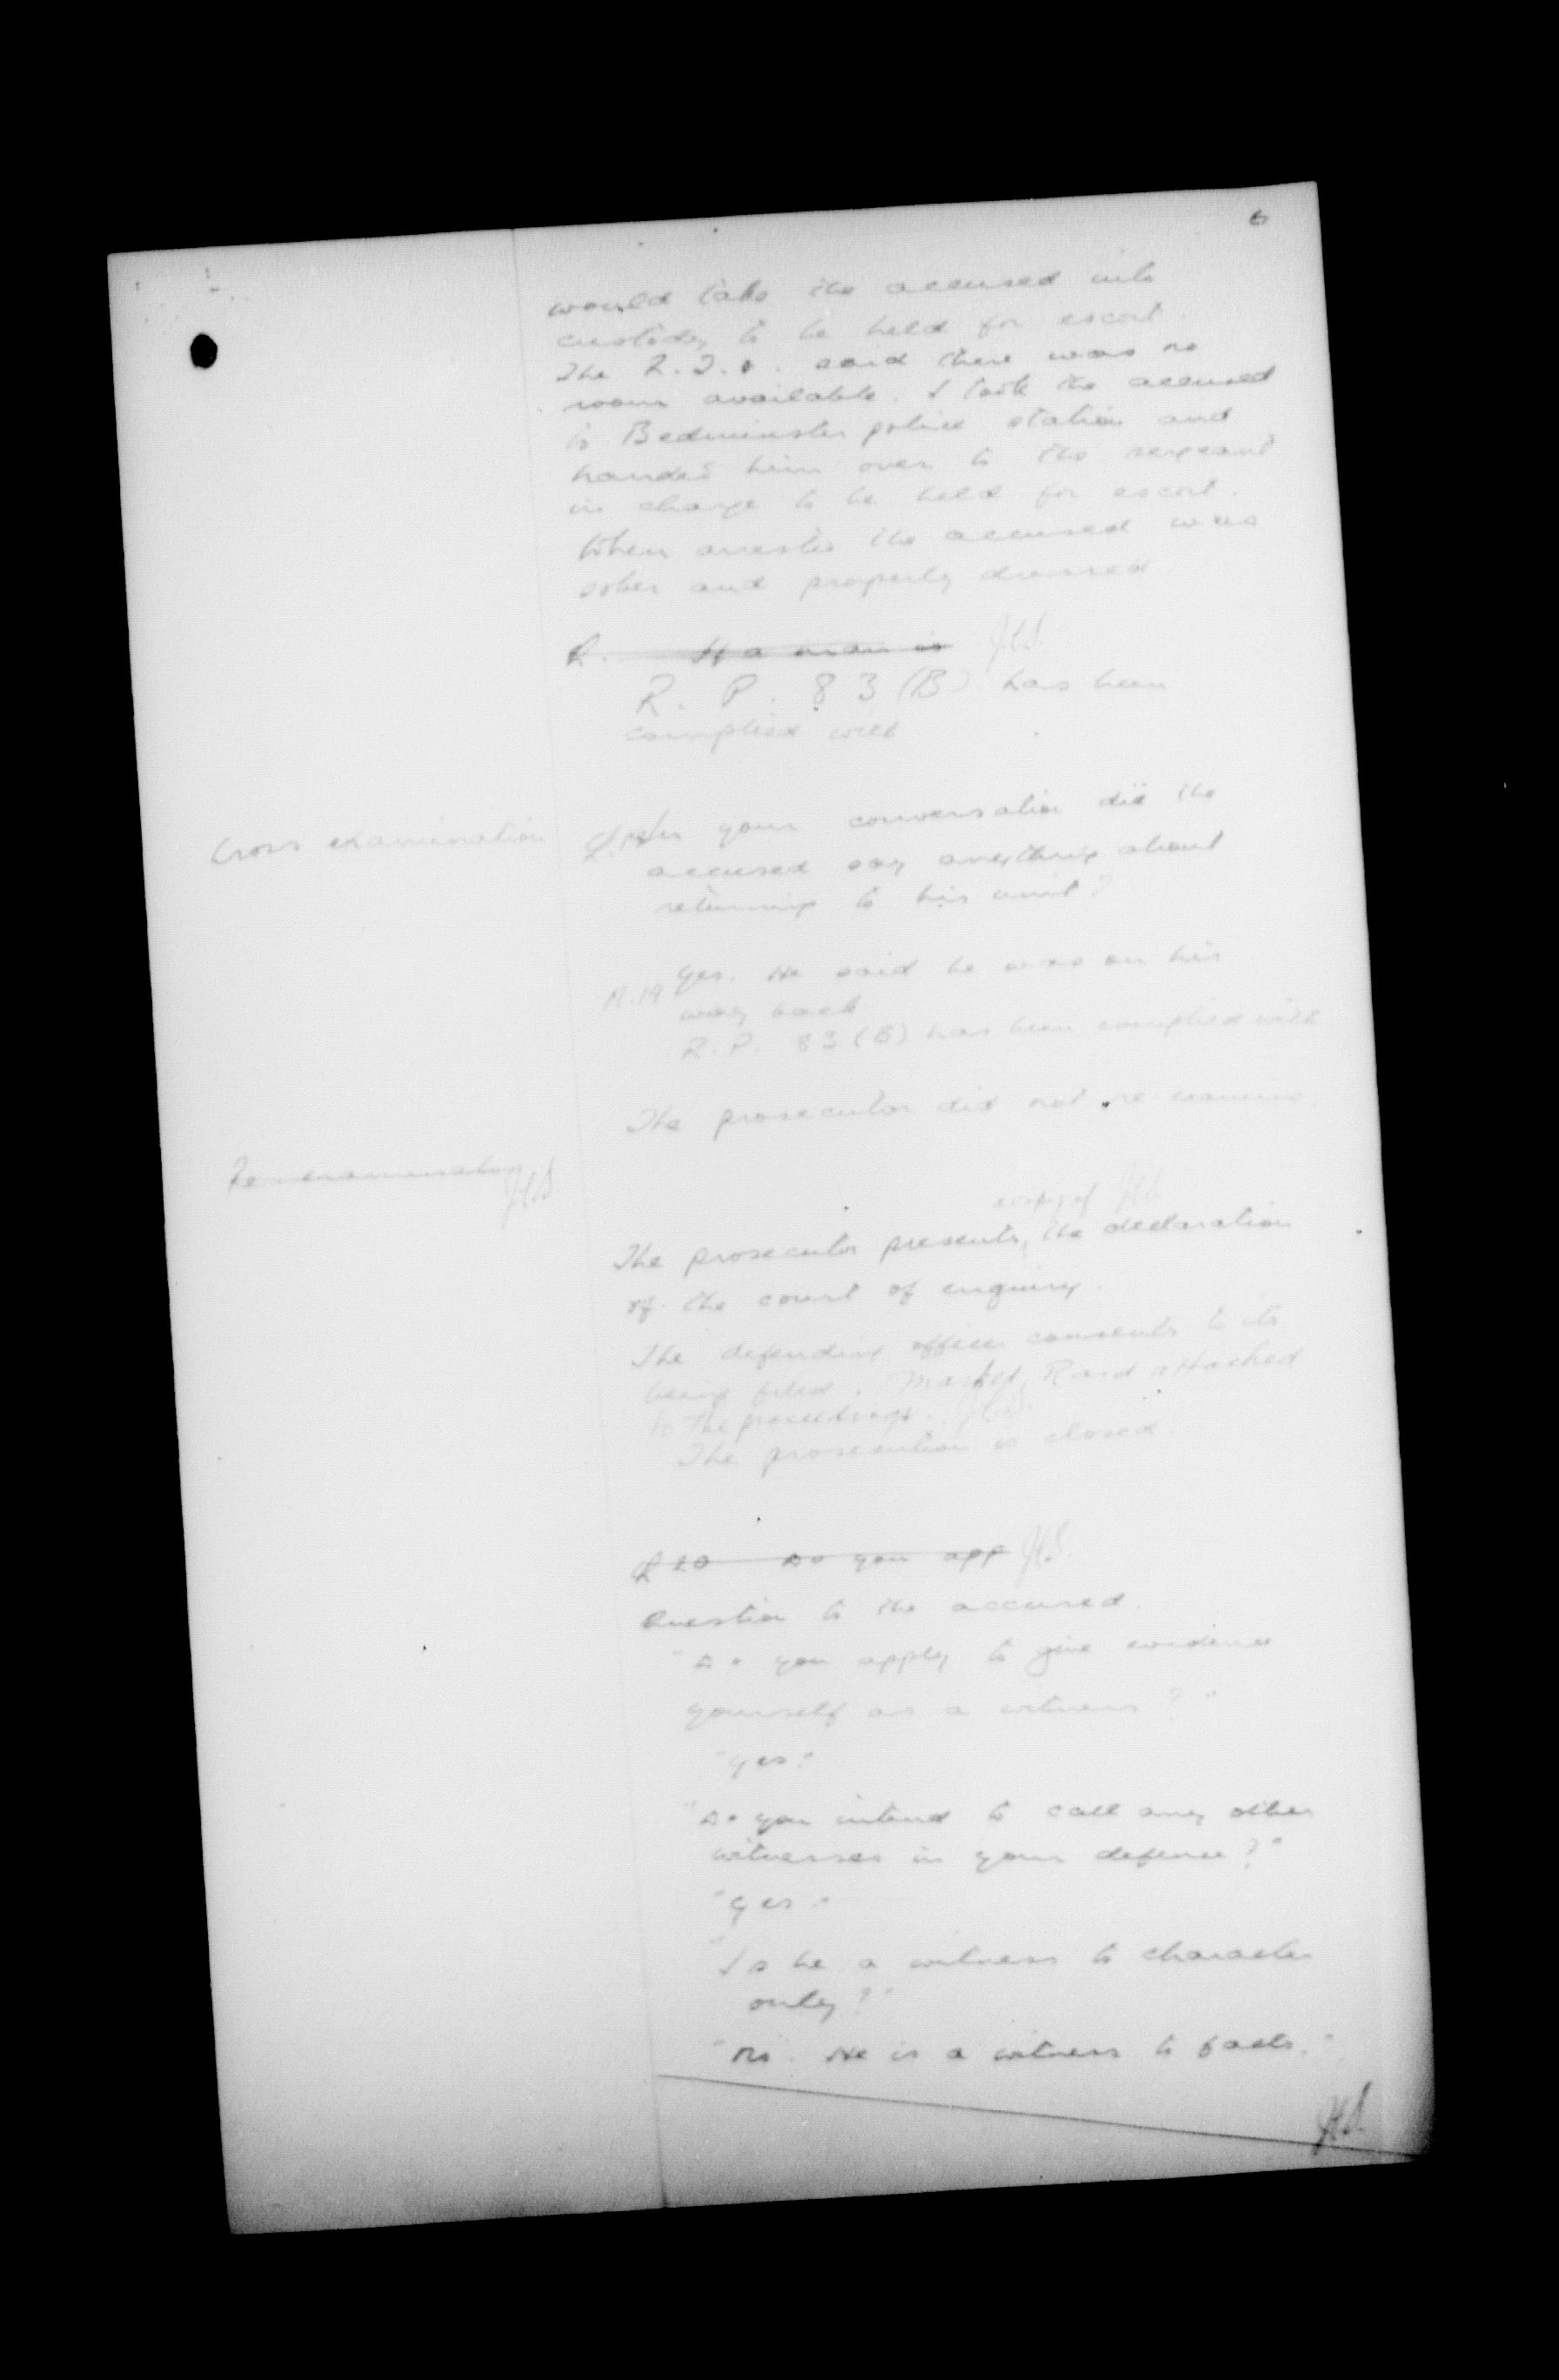 6
would take the accused into
custody to be held for escort.
The R.T.O. said there was no
room available. I took the accused
to Bedminster police station and
handed him over to the sergeant
in charge to be held for escort.
When arrested the accused was
sober and properly dressed.
Q. If a man is J.H.S.
R. P. 83 (B) has been
complied with
Cross examination
In your conversation did the
accused say anything about
returning to his unit?
A.19 Yes. He said he was on his
way back
R.P. 83 (B) has been complied with
The prosecutor did not re-examine.
Re-examination J.H.S.
a copy of J.H.S.
The prosecutor presents, the declaration
of the court of enquiry.
The defending officer consents to its
being filed, marked, R and attached
to the proceedings. J.H.S.
The prosecution is closed
Q 20 Do you app J.H.S.
Question to the accused.
"Do you apply to give evidence
yourself as a witness?"
"Yes."
"Do you intend to call any other
witnesses in your defence?"
"Yes."
"Is he a witness to character
only?"
"No. He is a witness to facts."
J.H.S.